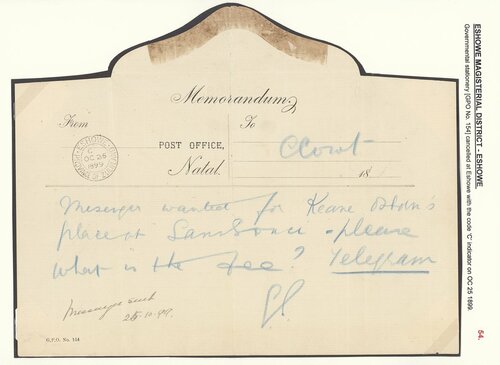 Memorandum
From
To
POST OFFICE,
Natal.
C Court
18
ESHOWE
C
OC 25
1899
Messenger wanted for Keane
place at Sans Souci - please
what is the fee? Telegram
Messenger sent
25.10.99.
G.P.O. No. 154
ESHOWE MAGISTERIAL DISTRICT - ESHOWE
Governmental stationery [GPO No. 154] cancelled at Eshowe with the code 'C' indicator on OC 25 1899.
54.